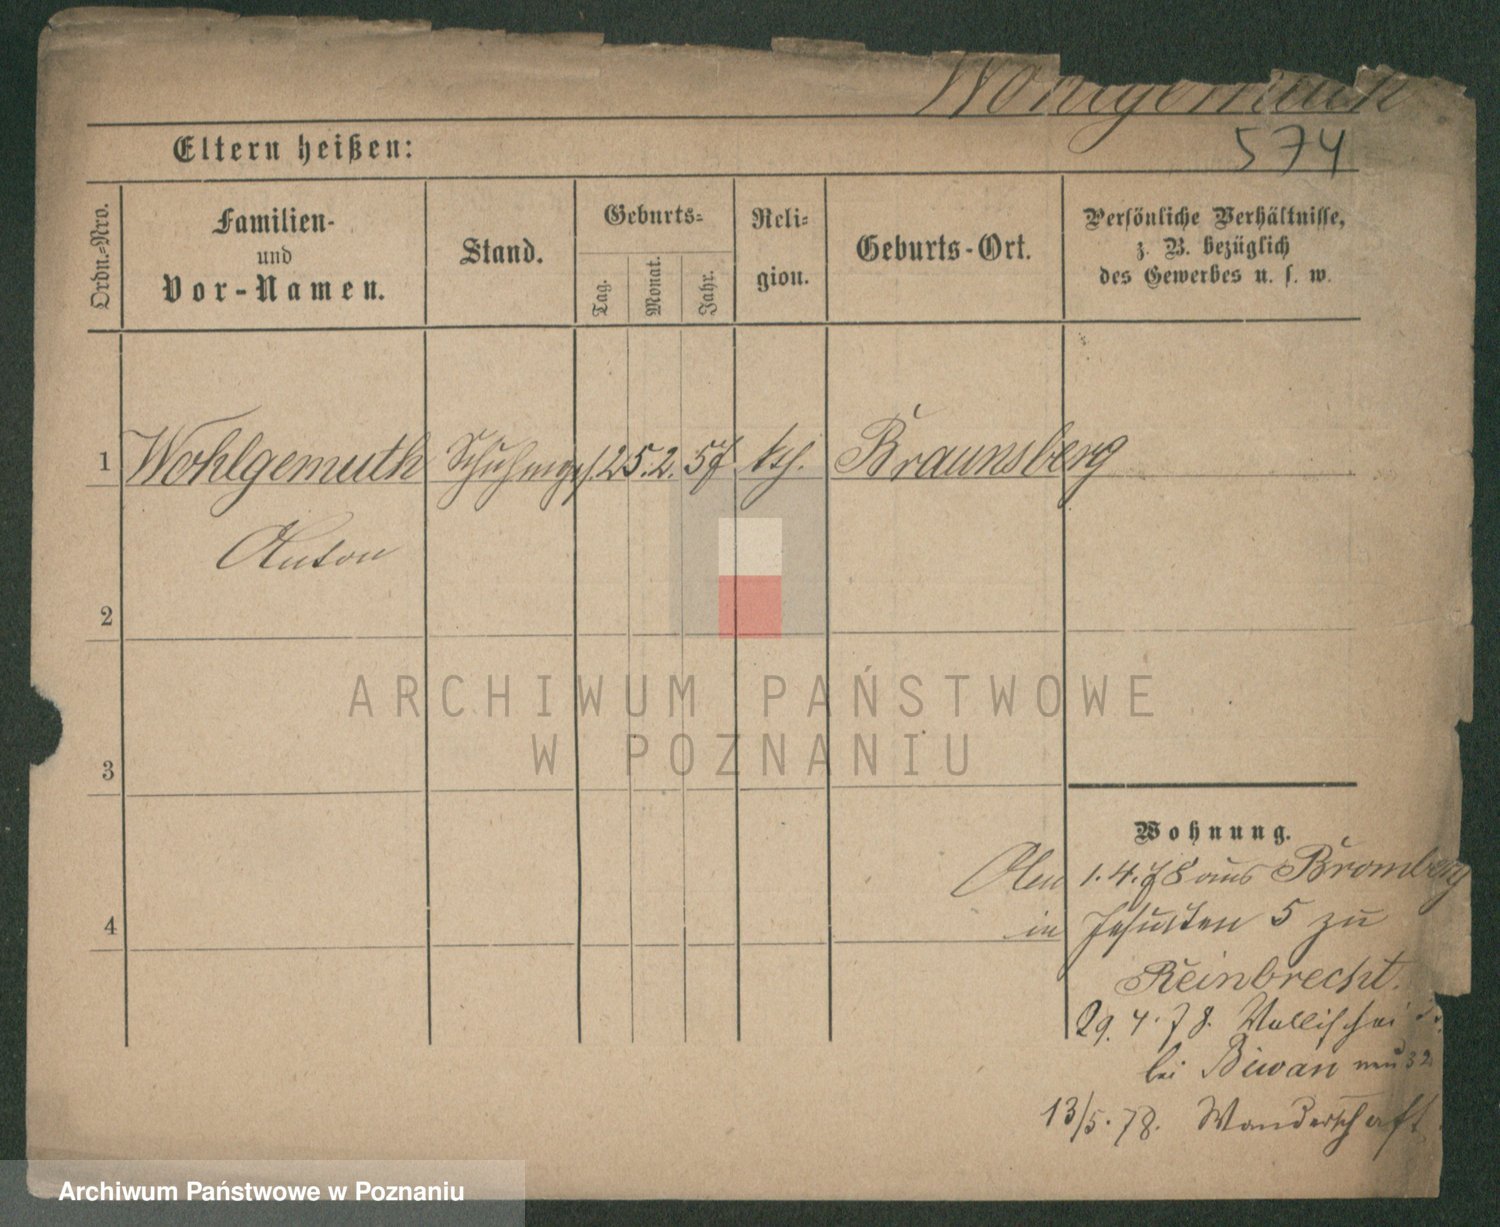 Wohlgemuth
574
Eltern heißen:
Ordn.-Nro.
Familien-
und
Vor-Namen.
Stand.
Geburts-
Tag.
Monat.
Jahr.
Reli-
gion.
Geburts-Ort.
Persönliche Verhältnisse,
z. B. bezüglich
des Gewerbes u. s. w.
1 Wohlgemuth Schuhmges. 25. 2. 57 kth. Braunsberg
Anton
2
ARCHIWUM PAŃSTWOWE
W POZNANIU
3
Wohnung.
1. 4. 78 aus Bromberg
4
in Jesuiten 5 zu
Reinbrecht.
29. 4. 78. Wallischei
bei neu 32
13/5. 78. Wanderschaft
Archiwum Państwowe w Poznaniu